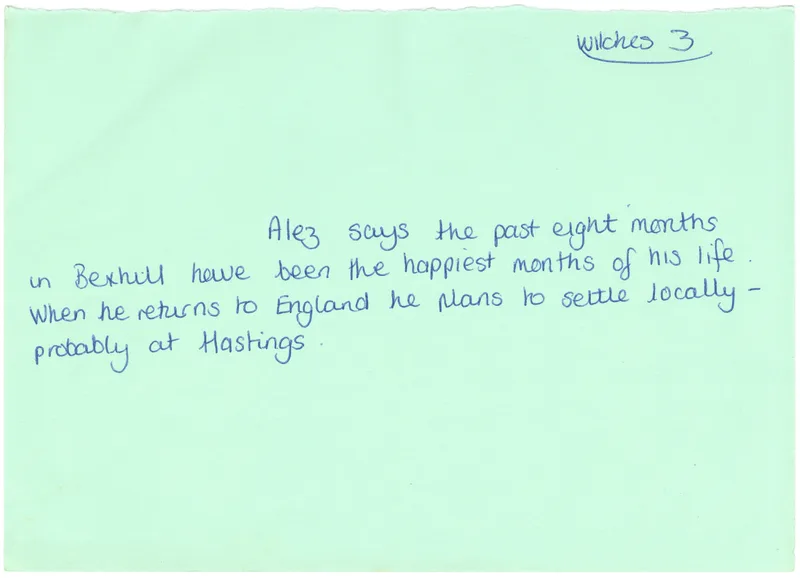 witches 3
Alez says the past eight months
in Bexhill have been the happiest months of his life.
When he returns to England he plans to settle locally –
probably at Hastings.